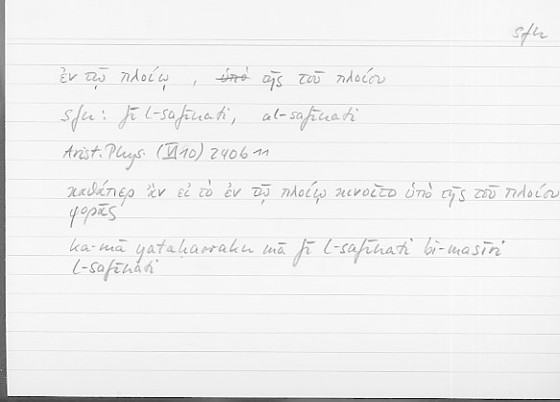 sfn
ἐν τῷ πλοίῳ, ὑπὸ τῆς τοῦ πλοίου
sfn: fī l-safīnati, al-safīnati
Arist. Phys. (VI 10) 240b11
καθάπερ ἂν εἰ τὸ ἐν τῷ πλοίῳ κινοῖτο ὑπὸ τῆς τοῦ πλοίου
φορᾶς
ka-mā yataḥarraku mā fī l-safīnati bi-masīri
l-safīnati